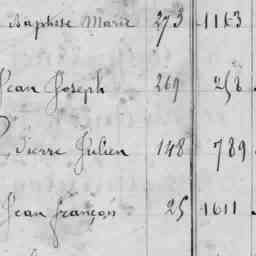 Baptiste Marie 273 1163
Jean Joseph 269 258
Pierre Julien 148 789
Jean françois 25 1611